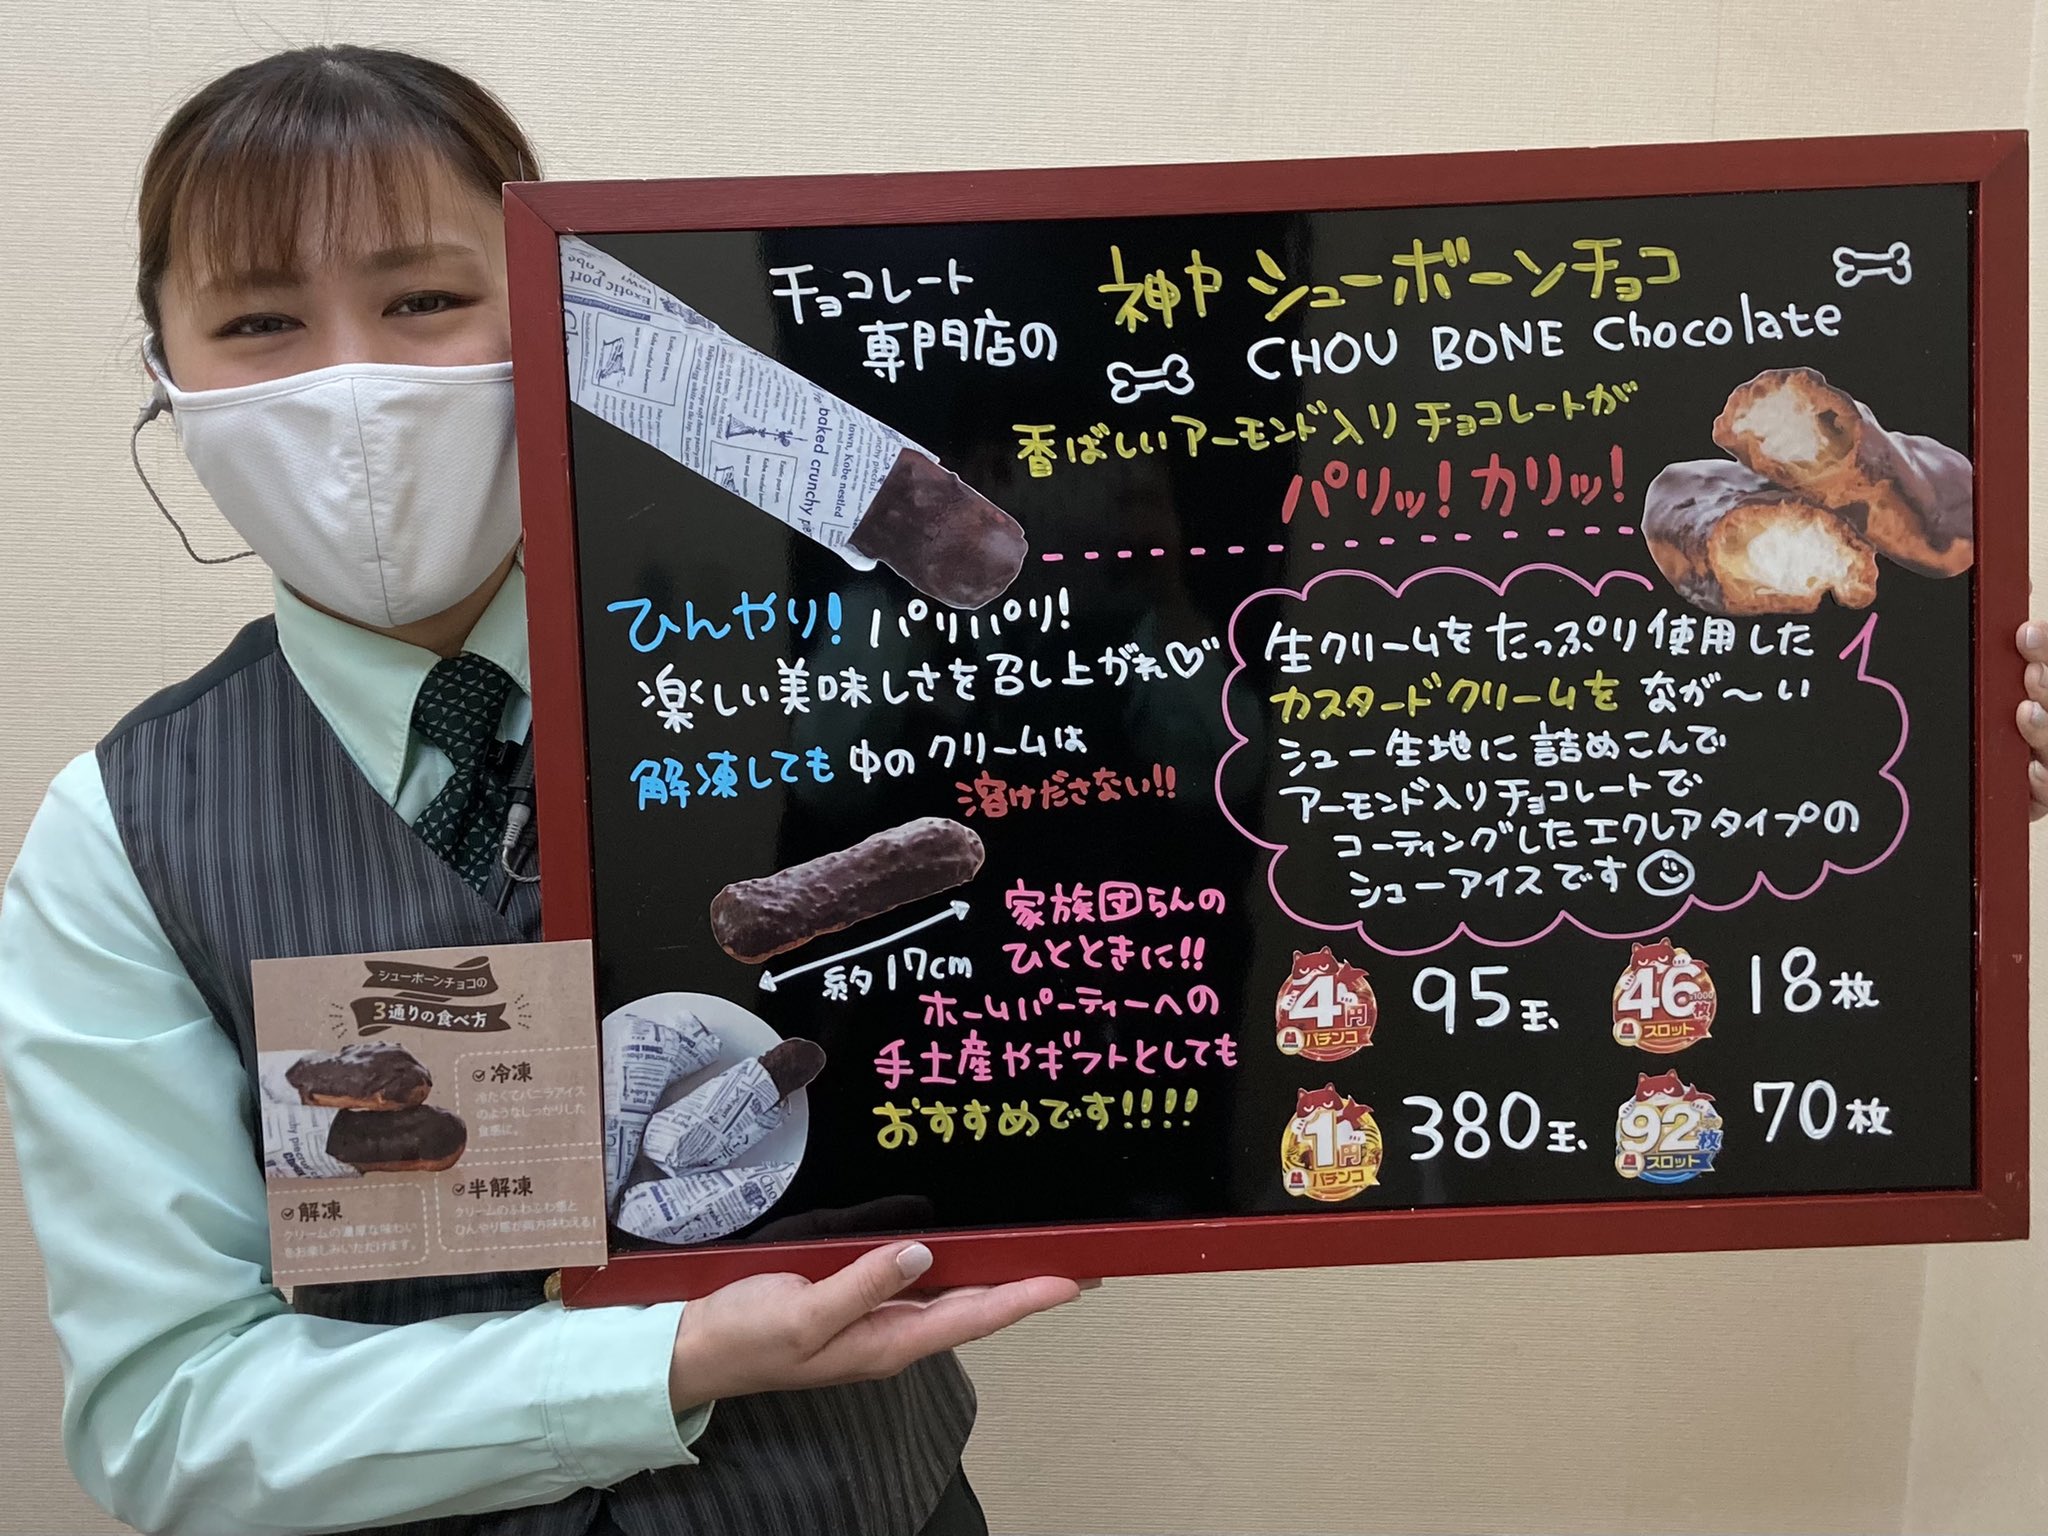 チョコレート
専門店の
神戸 シューボーンチョコ
CHOU BONE Chocolate
香ばしいアーモンド入りチョコレートが
パリッ! カリッ!
Exotic port
baked crunchy pie
town, Kobe nestled
ひんやり! パリパリ!
楽しい美味しさを召し上がれ♡
解凍しても 中のクリームは
溶けださない!!
生クリームを たっぷり使用した
カスタードクリームを なが〜い
シュー生地に 詰めこんで
アーモンド入りチョコレートで
コーティングしたエクレアタイプの
シューアイスです
約17cm
家族団らんの
ひとときに!!
ホームパーティーへの
手土産やギフトとしても
おすすめです!!!!
4円 パチンコ 95玉
46枚 スロット 18枚
1円 パチンコ 380玉
92枚 スロット 70枚
シューボーンチョコの
3通りの食べ方
冷凍
冷たくてバニラアイス
のようなしっかりした
食感に。
半解凍
クリームのふわふわ感と
ひんやり感が両方味わえる!
解凍
クリームの濃厚な味わい
をお楽しみいただけます。